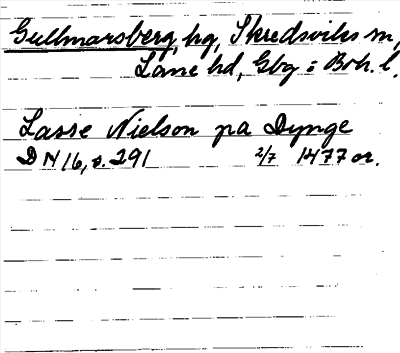 Gullmarsberg, hg, Skredsviks sn,
Lane hd, Gbg o Boh. l.
Lasse Nielson pa Dynge
DN 16, s. 291 2/7 1477 or.